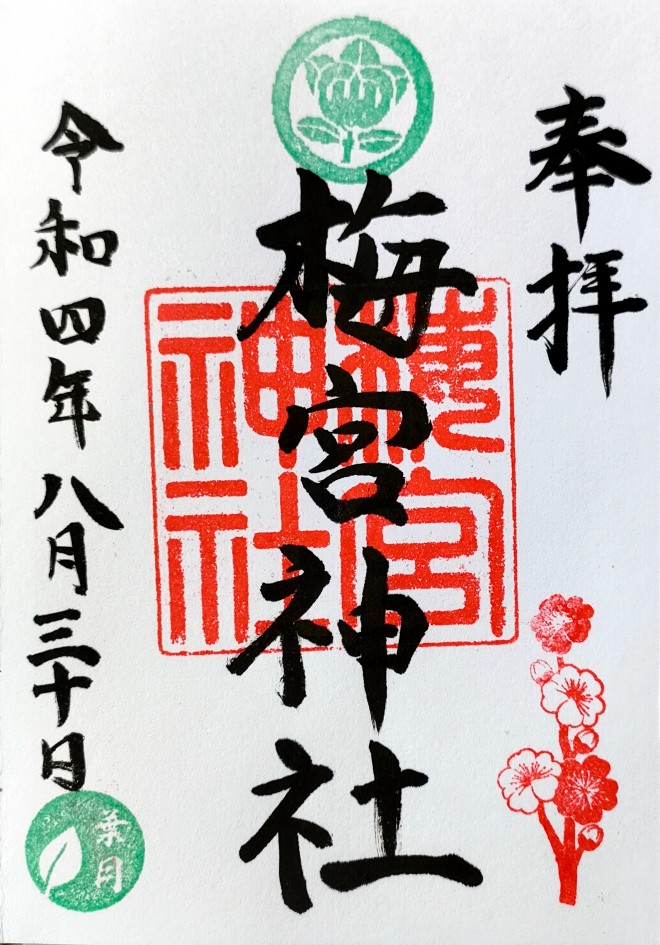 奉拝
梅宮神社
梅宮神社
令和四年八月三十日
葉月